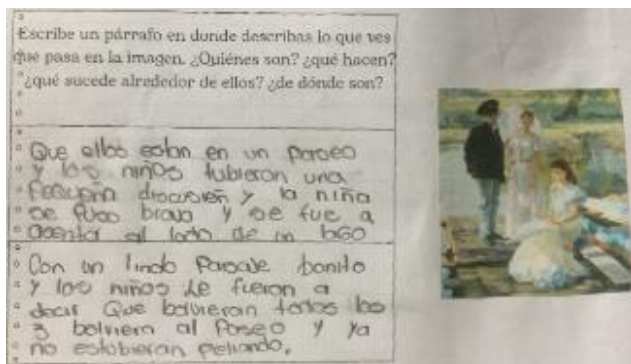 Escribe un párrafo en donde describas lo que ves
que pasa en la imagen. ¿Quiénes son? ¿qué hacen?
¿qué sucede alrededor de ellos? ¿de dónde son?
Que ellos estan en un paseo
y los niños tubieron una
pequeña discusión y la niña
se puso brava y se fue a
asentar al lado de un lago
Con un lindo Paisaje bonito
y los niños le fueron a
decir Que bolvieran todos los
3 bolviern al Paseo y ya
no estobieran peliando.